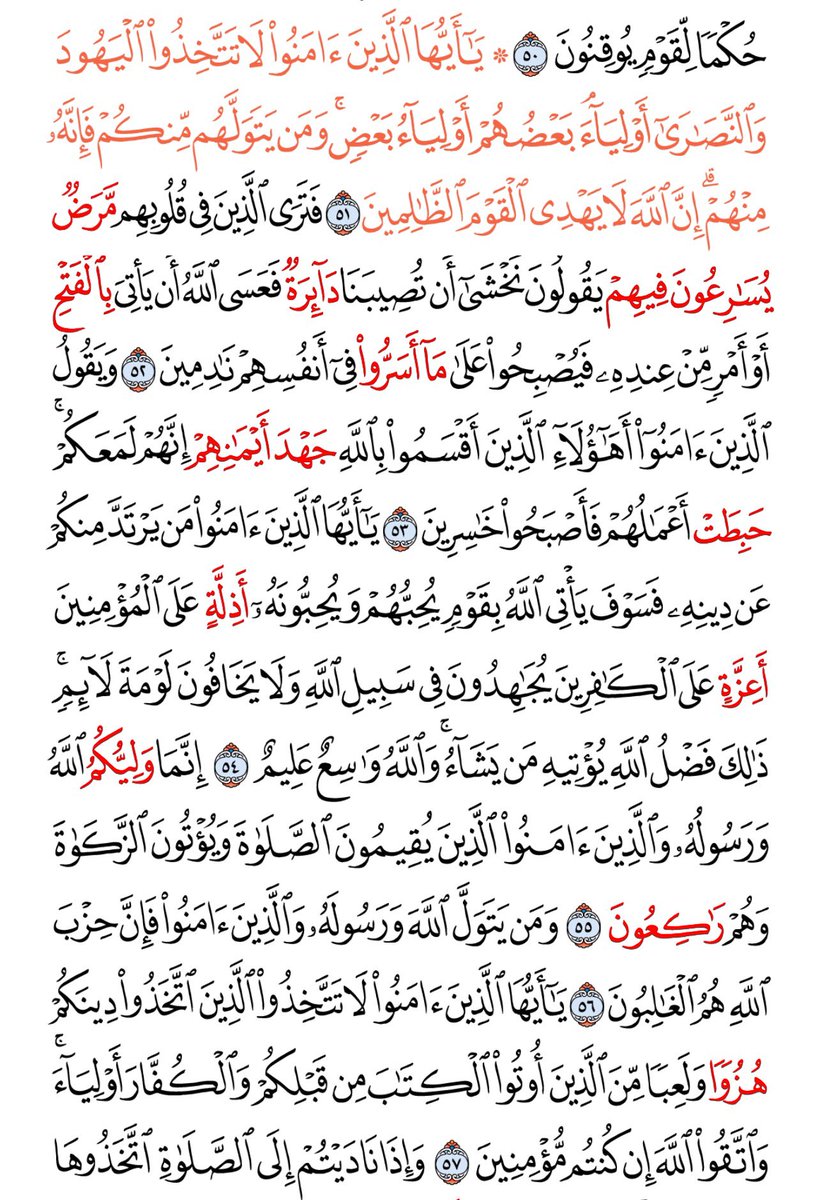 حُكْمًا لِّقَوْمٍ يُوقِنُونَ ٥٠ ۞ يَـٰٓأَيُّهَا ٱلَّذِينَ ءَامَنُوا۟ لَا تَتَّخِذُوا۟ ٱلْيَهُودَ
وَٱلنَّصَـٰرَىٰٓ أَوْلِيَآءَۘ بَعْضُهُمْ أَوْلِيَآءُ بَعْضٍۚ وَمَن يَتَوَلَّهُم مِّنكُمْ فَإِنَّهُۥ
مِنْهُمْۗ إِنَّ ٱللَّهَ لَا يَهْدِى ٱلْقَوْمَ ٱلظَّـٰلِمِينَ ٥١ فَتَرَى ٱلَّذِينَ فِى قُلُوبِهِم مَّرَضٌ
يُسَـٰرِعُونَ فِيهِمْ يَقُولُونَ نَخْشَىٰٓ أَن تُصِيبَنَا دَآئِرَةٌۚ فَعَسَى ٱللَّهُ أَن يَأْتِىَ بِٱلْفَتْحِ
أَوْ أَمْرٍ مِّنْ عِندِهِۦ فَيُصْبِحُوا۟ عَلَىٰ مَآ أَسَرُّوا۟ فِىٓ أَنفُسِهِمْ نَـٰدِمِينَ ٥٢ وَيَقُولُ
ٱلَّذِينَ ءَامَنُوٓا۟ أَهَـٰٓؤُلَآءِ ٱلَّذِينَ أَقْسَمُوا۟ بِٱللَّهِ جَهْدَ أَيْمَـٰنِهِمْ إِنَّهُمْ لَمَعَكُمْۚ
حَبِطَتْ أَعْمَـٰلُهُمْ فَأَصْبَحُوا۟ خَـٰسِرِينَ ٥٣ يَـٰٓأَيُّهَا ٱلَّذِينَ ءَامَنُوا۟ مَن يَرْتَدَّ مِنكُمْ
عَن دِينِهِۦ فَسَوْفَ يَأْتِى ٱللَّهُ بِقَوْمٍ يُحِبُّهُمْ وَيُحِبُّونَهُۥٓ أَذِلَّةٍ عَلَى ٱلْمُؤْمِنِينَ
أَعِزَّةٍ عَلَى ٱلْكَـٰفِرِينَ يُجَـٰهِدُونَ فِى سَبِيلِ ٱللَّهِ وَلَا يَخَافُونَ لَوْمَةَ لَآئِمٍۚ
ذَٰلِكَ فَضْلُ ٱللَّهِ يُؤْتِيهِ مَن يَشَآءُۚ وَٱللَّهُ وَٰسِعٌ عَلِيمٌ ٥٤ إِنَّمَا وَلِيُّكُمُ ٱللَّهُ
وَرَسُولُهُۥ وَٱلَّذِينَ ءَامَنُوا۟ ٱلَّذِينَ يُقِيمُونَ ٱلصَّلَوٰةَ وَيُؤْتُونَ ٱلزَّكَوٰةَ
وَهُمْ رَٰكِعُونَ ٥٥ وَمَن يَتَوَلَّ ٱللَّهَ وَرَسُولَهُۥ وَٱلَّذِينَ ءَامَنُوا۟ فَإِنَّ حِزْبَ
ٱللَّهِ هُمُ ٱلْغَـٰلِبُونَ ٥٦ يَـٰٓأَيُّهَا ٱلَّذِينَ ءَامَنُوا۟ لَا تَتَّخِذُوا۟ ٱلَّذِينَ ٱتَّخَذُوا۟ دِينَكُمْ
هُزُوًا وَلَعِبًا مِّنَ ٱلَّذِينَ أُوتُوا۟ ٱلْكِتَـٰبَ مِن قَبْلِكُمْ وَٱلْكُفَّارَ أَوْلِيَآءَۚ
وَٱتَّقُوا۟ ٱللَّهَ إِن كُنتُم مُّؤْمِنِينَ ٥٧ وَإِذَا نَادَيْتُمْ إِلَى ٱلصَّلَوٰةِ ٱتَّخَذُوهَا